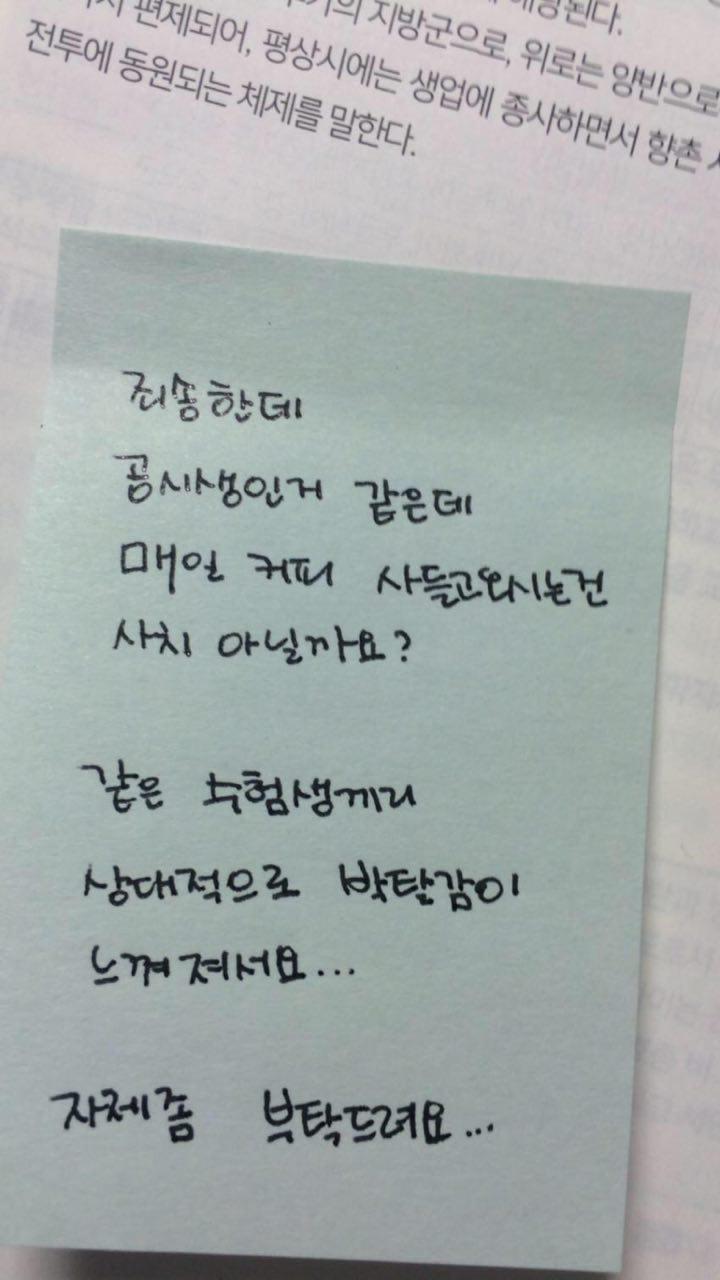 해당된다.
의 지방군으로, 위로는 양반으로
편제되어, 평상시에는 생업에 종사하면서 향촌
전투에 동원되는 체제를 말한다.
죄송한데
공시생인거 같은데
매일 커피 사들고오시는건
사치 아닐까요?
같은 수험생끼리
상대적으로 박탈감이
느껴져서요...
자제좀 부탁드려요...